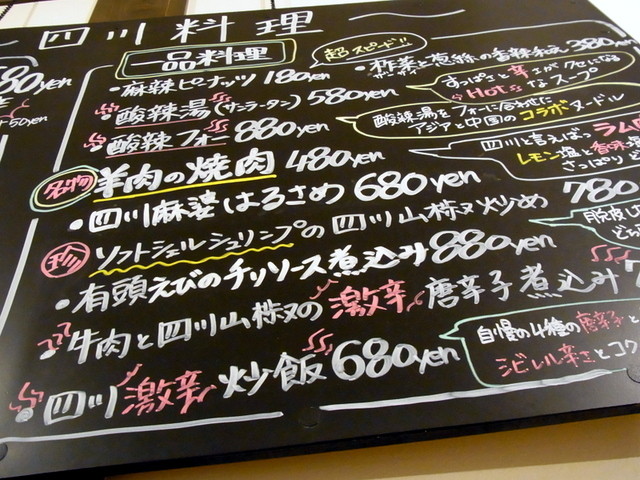 四川料理
80yen
50yen
一品料理
超スピード!!
・麻辣ピーナッツ 180yen
・搾菜と葱絲の香辣和え 380yen
・酸辣湯(サンラータン) 580yen
すっぱさと辛さがクセになる
Hotなスープ
・酸辣フォー 880yen
酸辣湯をフォーに合わせた
アジアと中国のコラボヌードル
名物 羊肉の焼肉 480yen
四川と言えばっ ラム
レモン塩と香味塩
さっぱりと
・四川麻婆はるさめ 680yen
珍 ソフトシェルシュリンプの四川山椒炒め 780
・有頭えびのチリソース煮込み 880yen
・牛肉と四川山椒の激辛唐辛子煮込み 7
自慢の4種の唐辛子と
シビレル辛さとコク
・四川激辛炒飯 680yen